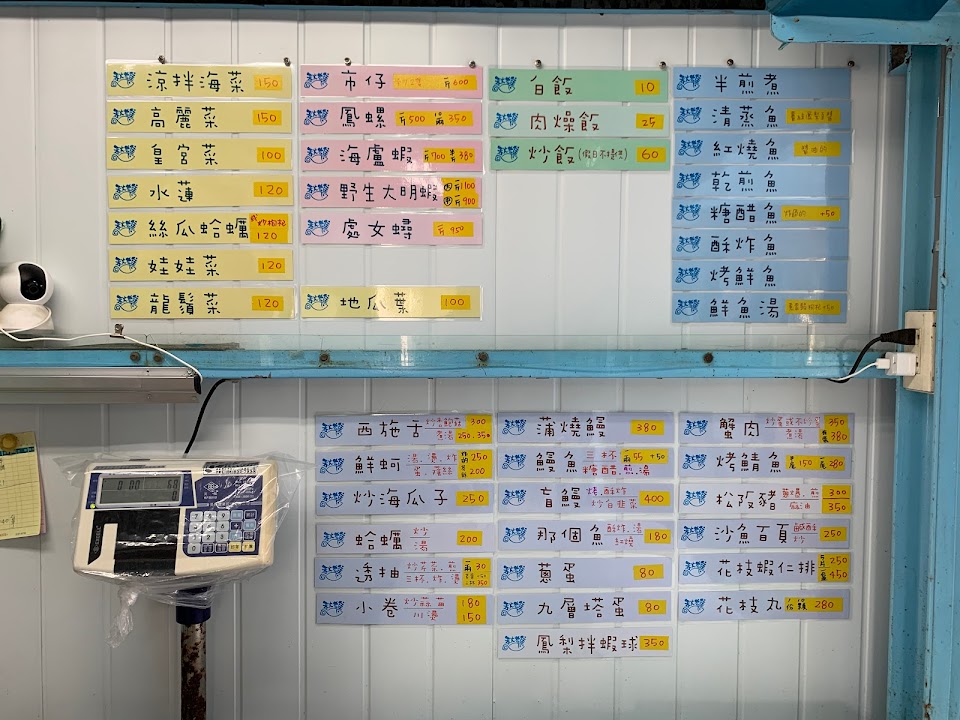 涼拌海菜 150
高麗菜 150
皇宮菜 100
水蓮 120
絲瓜蛤蠣 120
娃娃菜 120
龍鬚菜 120
市仔 斤600
鳳螺 斤500 350
海盧蝦 斤700 380
野生大明蝦
處女蟳 斤950
地瓜葉 100
白飯 10
肉燥飯 25
炒飯(假日不提供) 60
半煎煮
清蒸魚
紅燒魚 醬油的
乾煎魚
糖醋魚 +50
酥炸魚
烤鮮魚
鮮魚湯
西施舌 300
鮮蚵 250 200
炒海瓜子 250
蛤蠣 炒 湯 200
透抽 三杯、炸、燙
小卷 炒蒜苗 川燙 180 150
蒲燒鰻 380
鰻魚 三杯 糖醋、煎、湯 兩55 +50
盲鰻 烤、酥炸 炒白韭菜 400
那個魚 酥炸、湯 紅燒 180
蔥蛋 80
九層塔蛋 80
鳳梨拌蝦球 350
蟹肉 350 380
烤鯖魚 150 280
松阪豬 300 350
沙魚百頁 鹹酥 炒 250
花枝蝦仁排 250 450
花枝丸 280